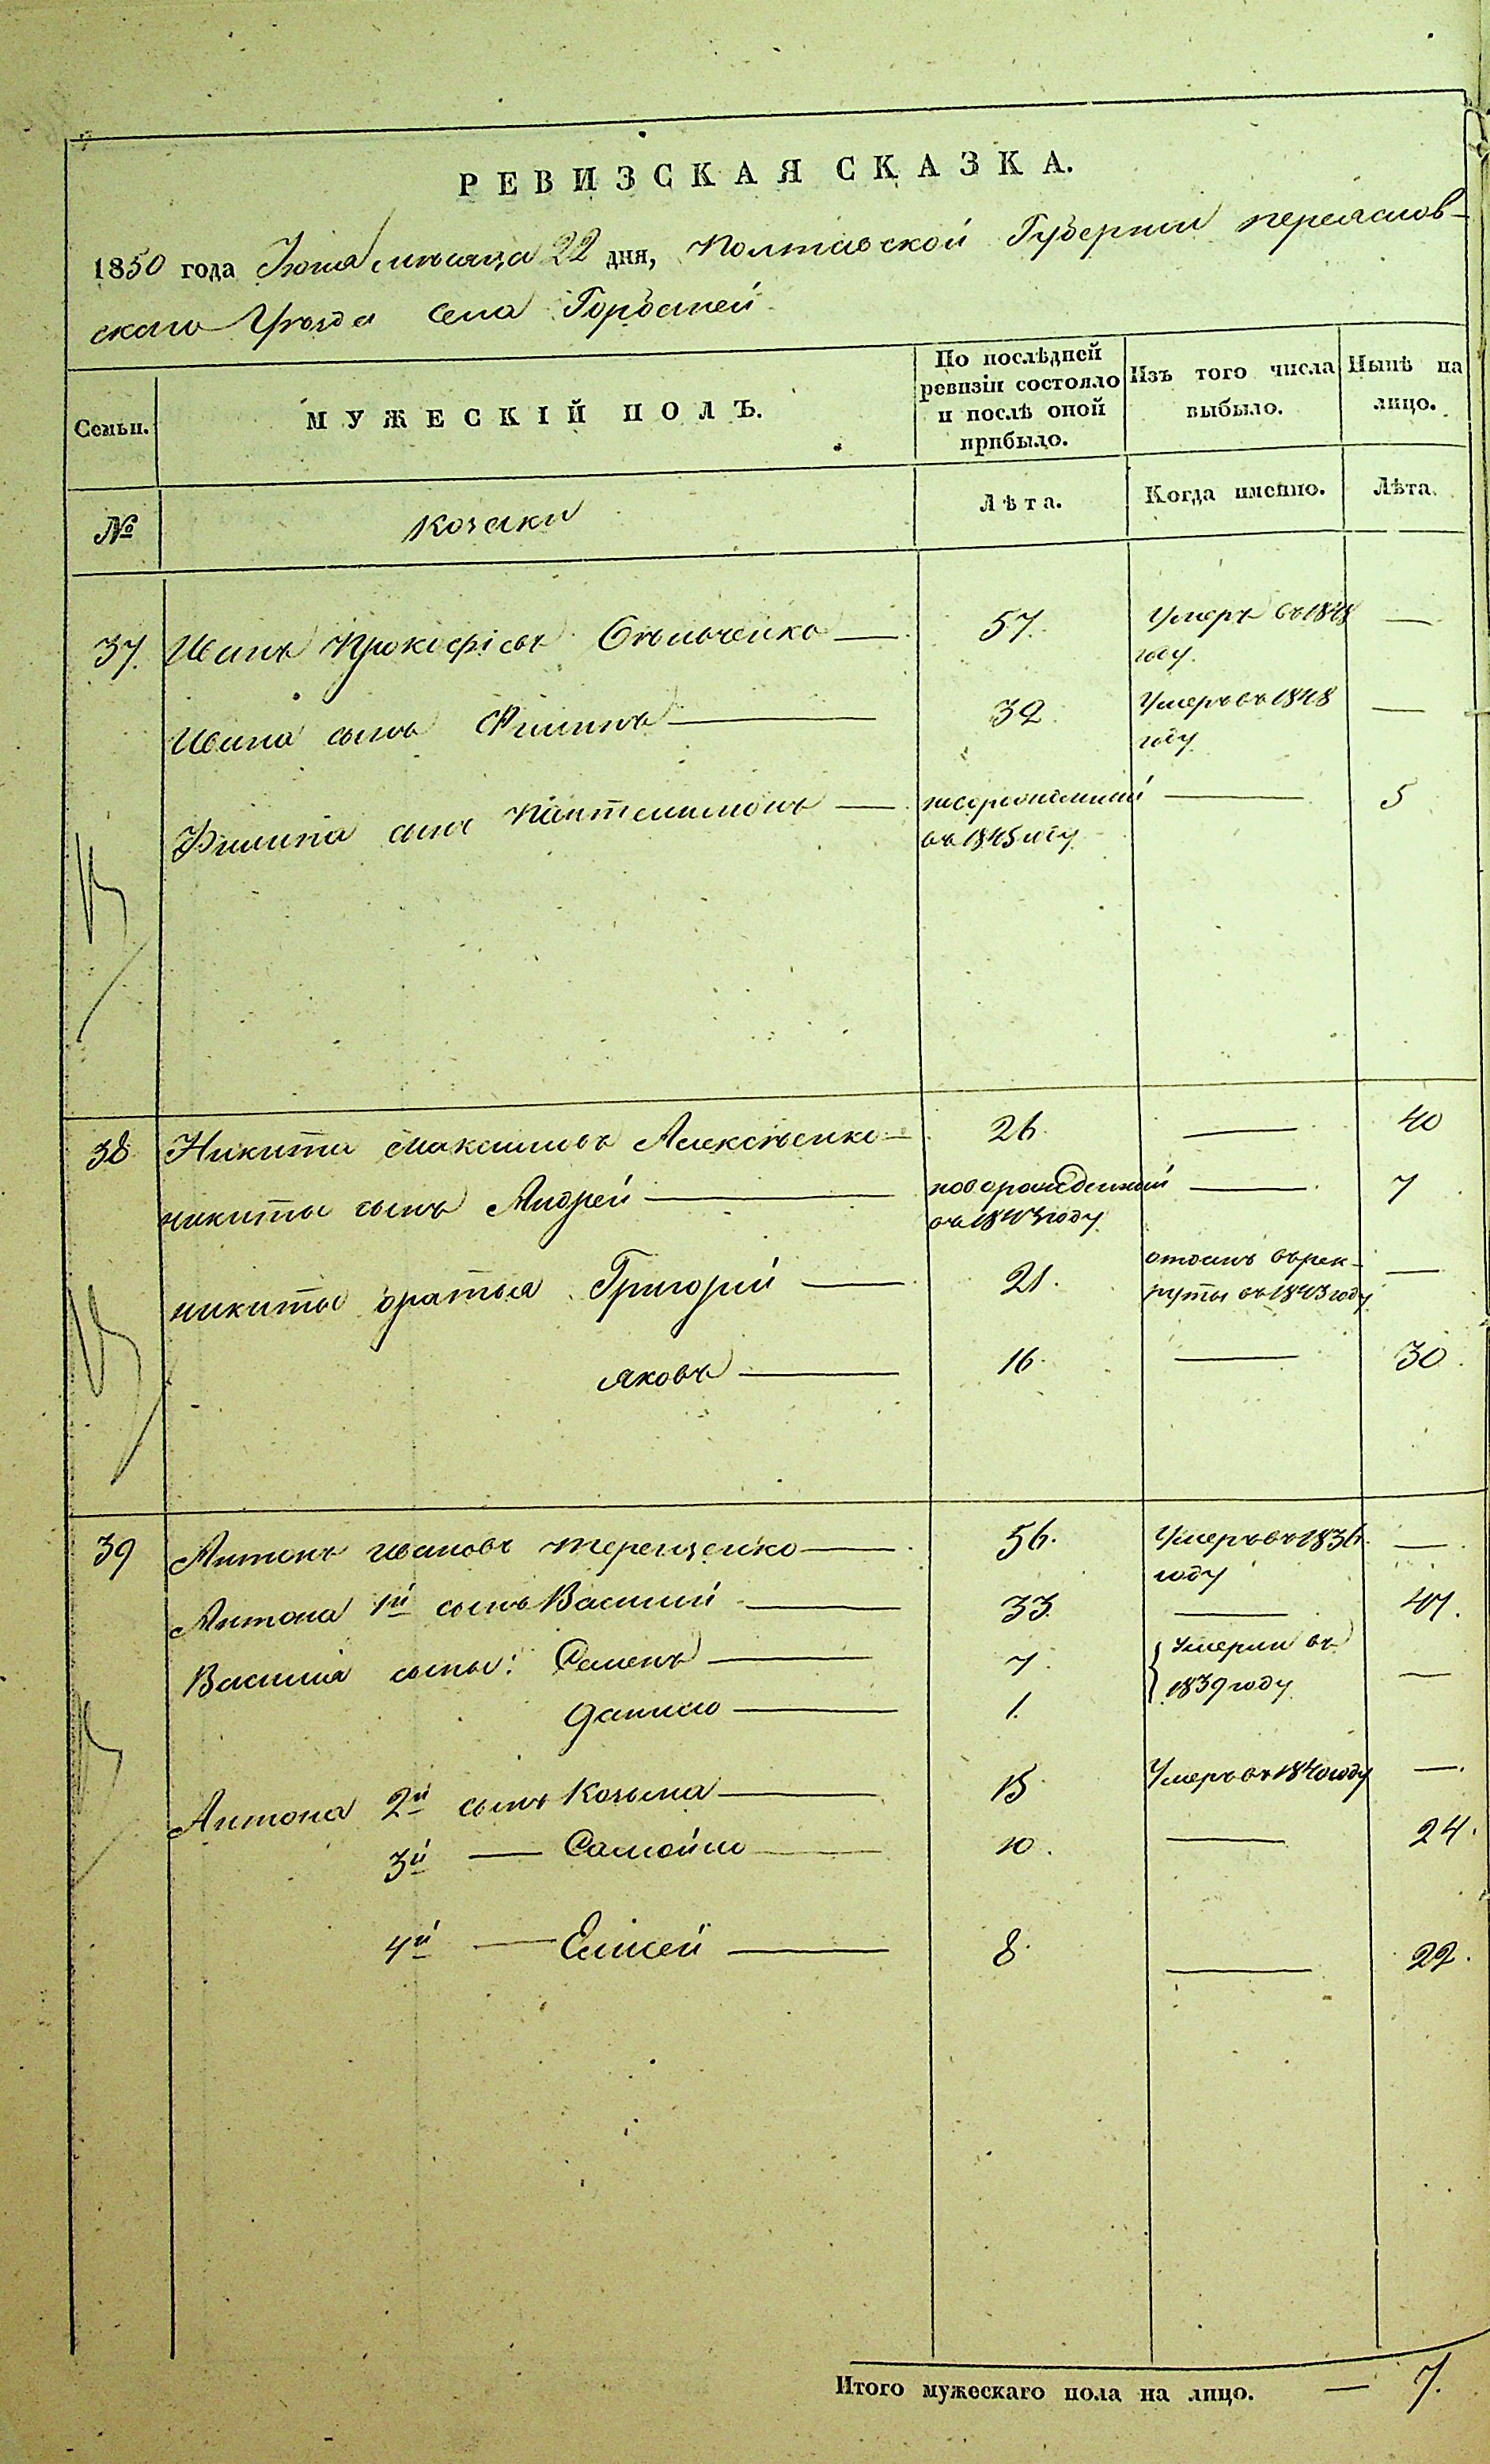 РЕВИЗСКАЯ СКАЗКА.
1850 года Іюня мѣсяца 22 дня, Полтавской Губерніи переяслов-
скаго Уѣзда села Горбаней
Семьи. МУЖЕСКІЙ ПОЛЪ. По послѣдней ревизіи состояло и послѣ оной прибыло. Изъ того числа выбыло. Нынѣ на лицо.
№ Козаки Лѣта. Когда именно. Лѣта.
37. Иванъ Прокофіевъ — 57. Умеръ въ 1848 году. —
Ивана сынъ Филипъ — 32. Умеръ въ 1848 году —
Филипа сынъ Пантелимонъ — новорожденный въ 1845 году — 5
38 Никита Максимовъ Алексѣенко — 26. — 40
никиты сынъ Андрей — новорожденный въ 1843 году — 7
никиты братья Григорій — 21. отданъ въ рек-руты въ 1843 году —
яковъ — 16. — 30.
39 Антонъ Ивановъ терещенко — 56. Умеръ въ 1836. году —
Антона 1й сынъ Василій — 33. — 47.
Василія сыны: Семенъ — 7. Умерли въ 1839 году —
Данило — 1.
Антона 2й сынъ Козьма — 15. Умеръ въ 1840 году —
3й — Самойло — 10. — 24.
4й — Елисей — 8. — 22.
Итого мужескаго пола на лицо. — 7.